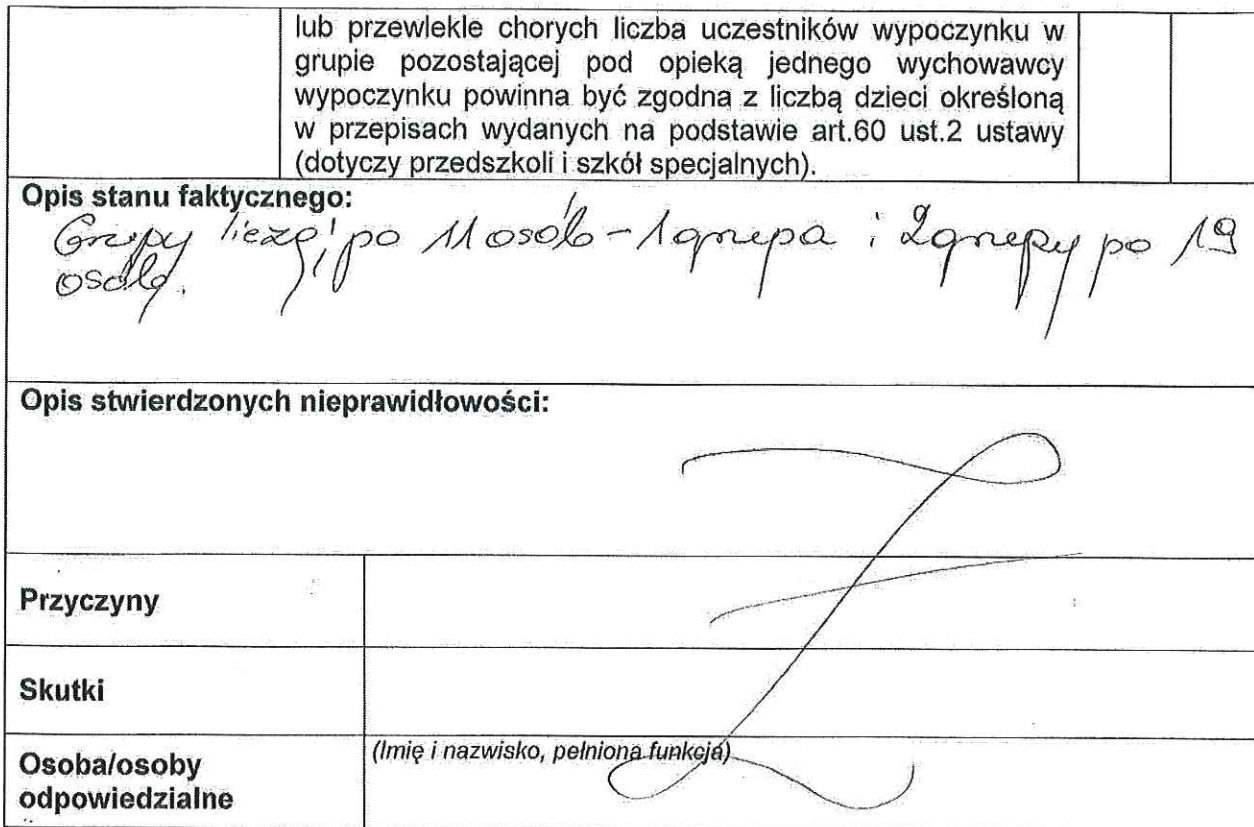 lub przewlekle chorych liczba uczestników wypoczynku w
grupie pozostającej pod opieką jednego wychowawcy
wypoczynku powinna być zgodna z liczbą dzieci określoną
w przepisach wydanych na podstawie art.60 ust.2 ustawy
(dotyczy przedszkoli i szkół specjalnych).
Opis stanu faktycznego:
Grupy liczą po 11 osób - 1 grupa i 2 grupy po 19
osób.
Opis stwierdzonych nieprawidłowości:
Przyczyny
Skutki
Osoba/osoby
odpowiedzialne
(Imię i nazwisko, pełniona funkcja)